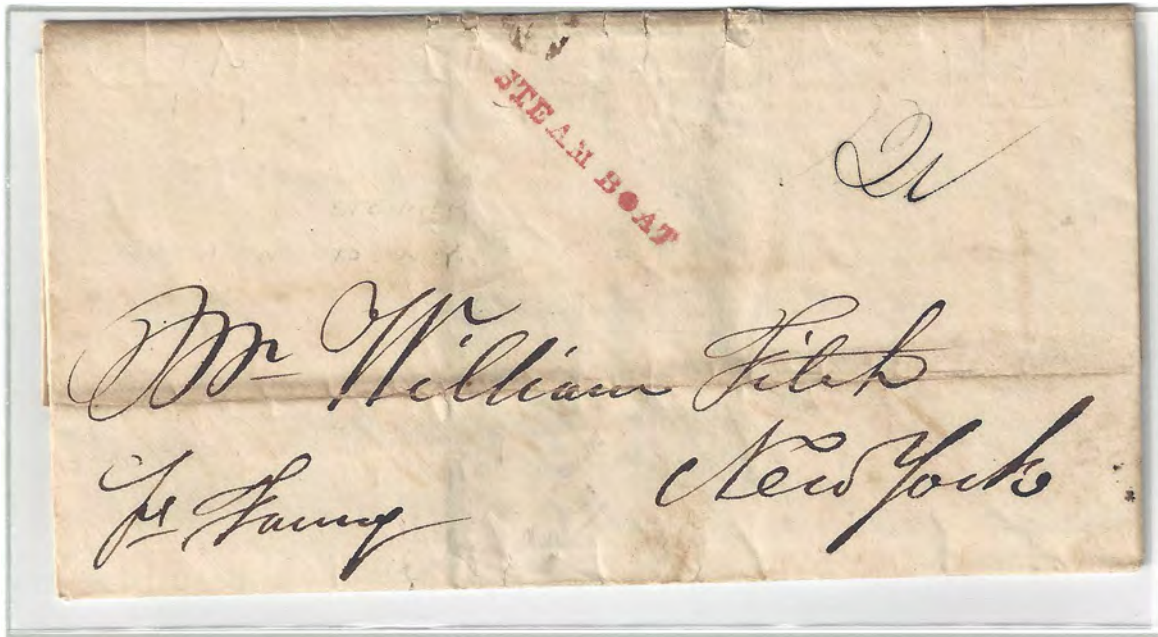 STEAM BOAT
Mr William Fitch
New York
pr Fanny